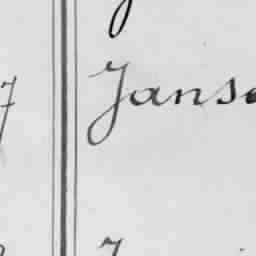 7 Janse